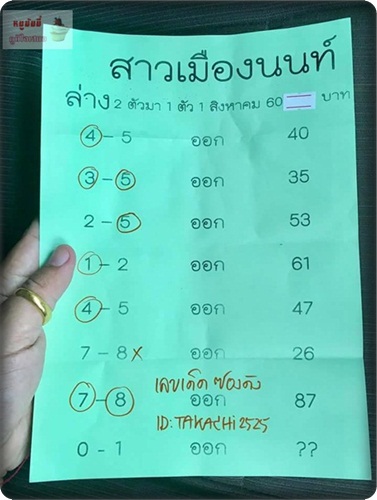 หนูขันตี่
สาวเมืองนนท์
ล่าง 2 ตัวมา 1 ตัว 1 สิงหาคม 60 บาท
4 - 5 ออก 40
3 - 5 ออก 35
2 - 5 ออก 53
1 - 2 ออก 61
4 - 5 ออก 47
7 - 8 x ออก 26
เลขเด็ด ซองดัง
7 - 8 ออก 87
ID: TAKACHI2525
0 - 1 ออก ??